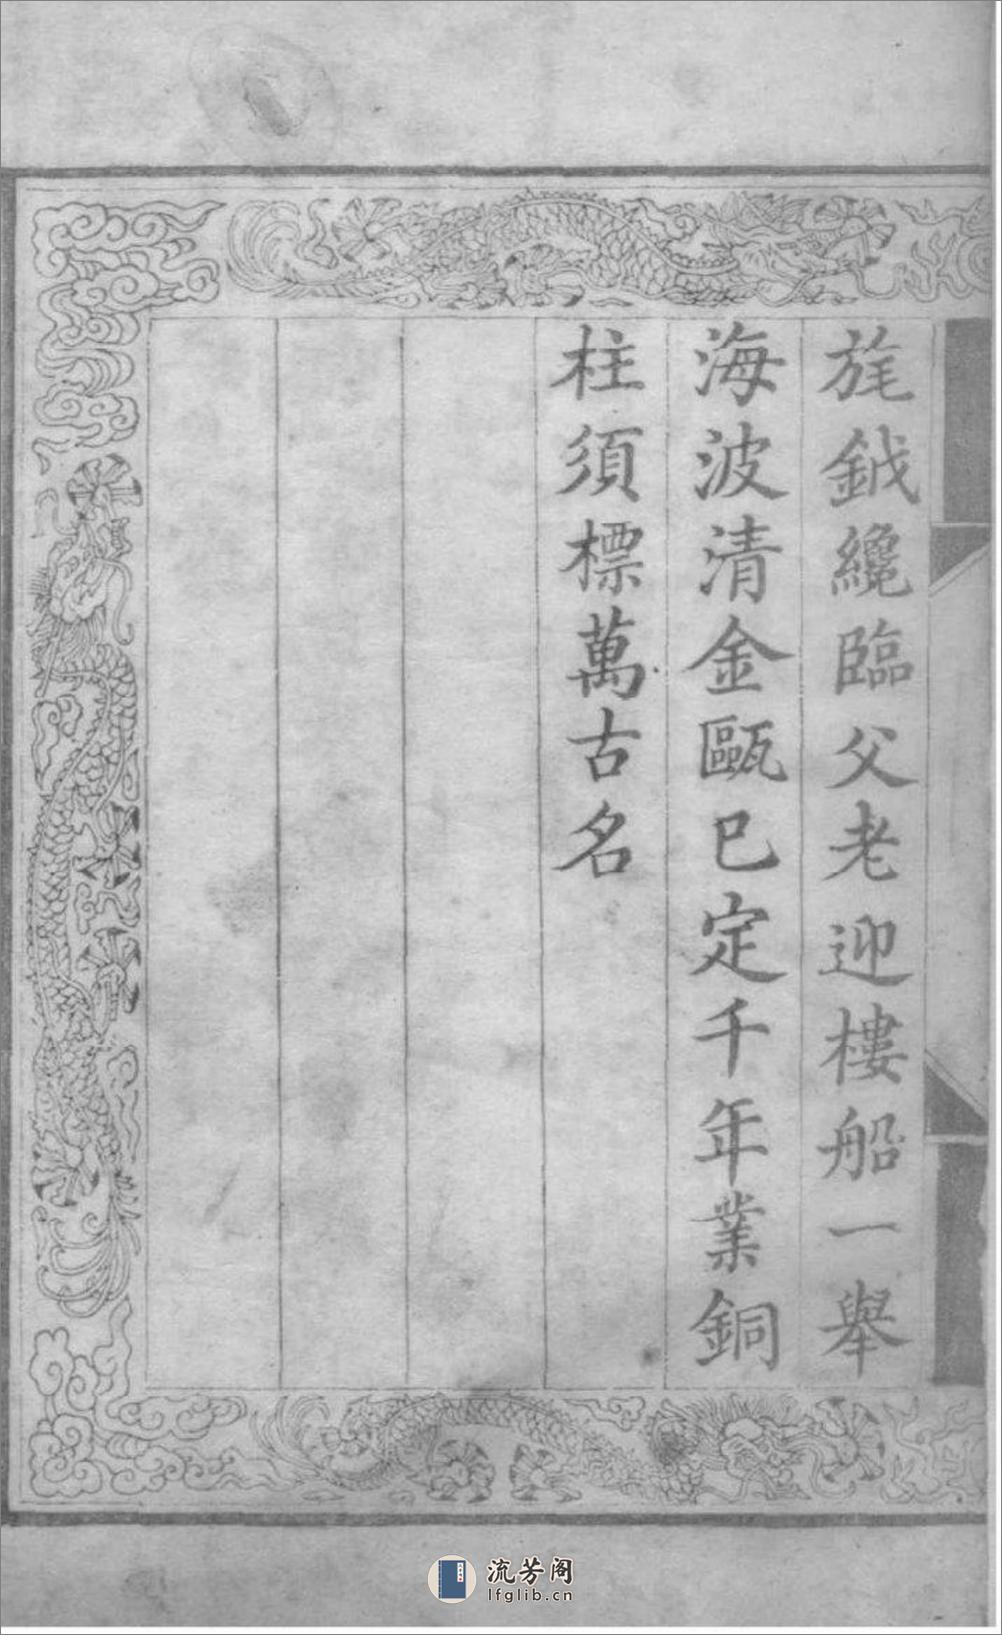 旄鉞纔臨父老迎樓船一舉
海波清金甌已定千年業銅
柱須標萬古名
流芳阁
lfglib.cn